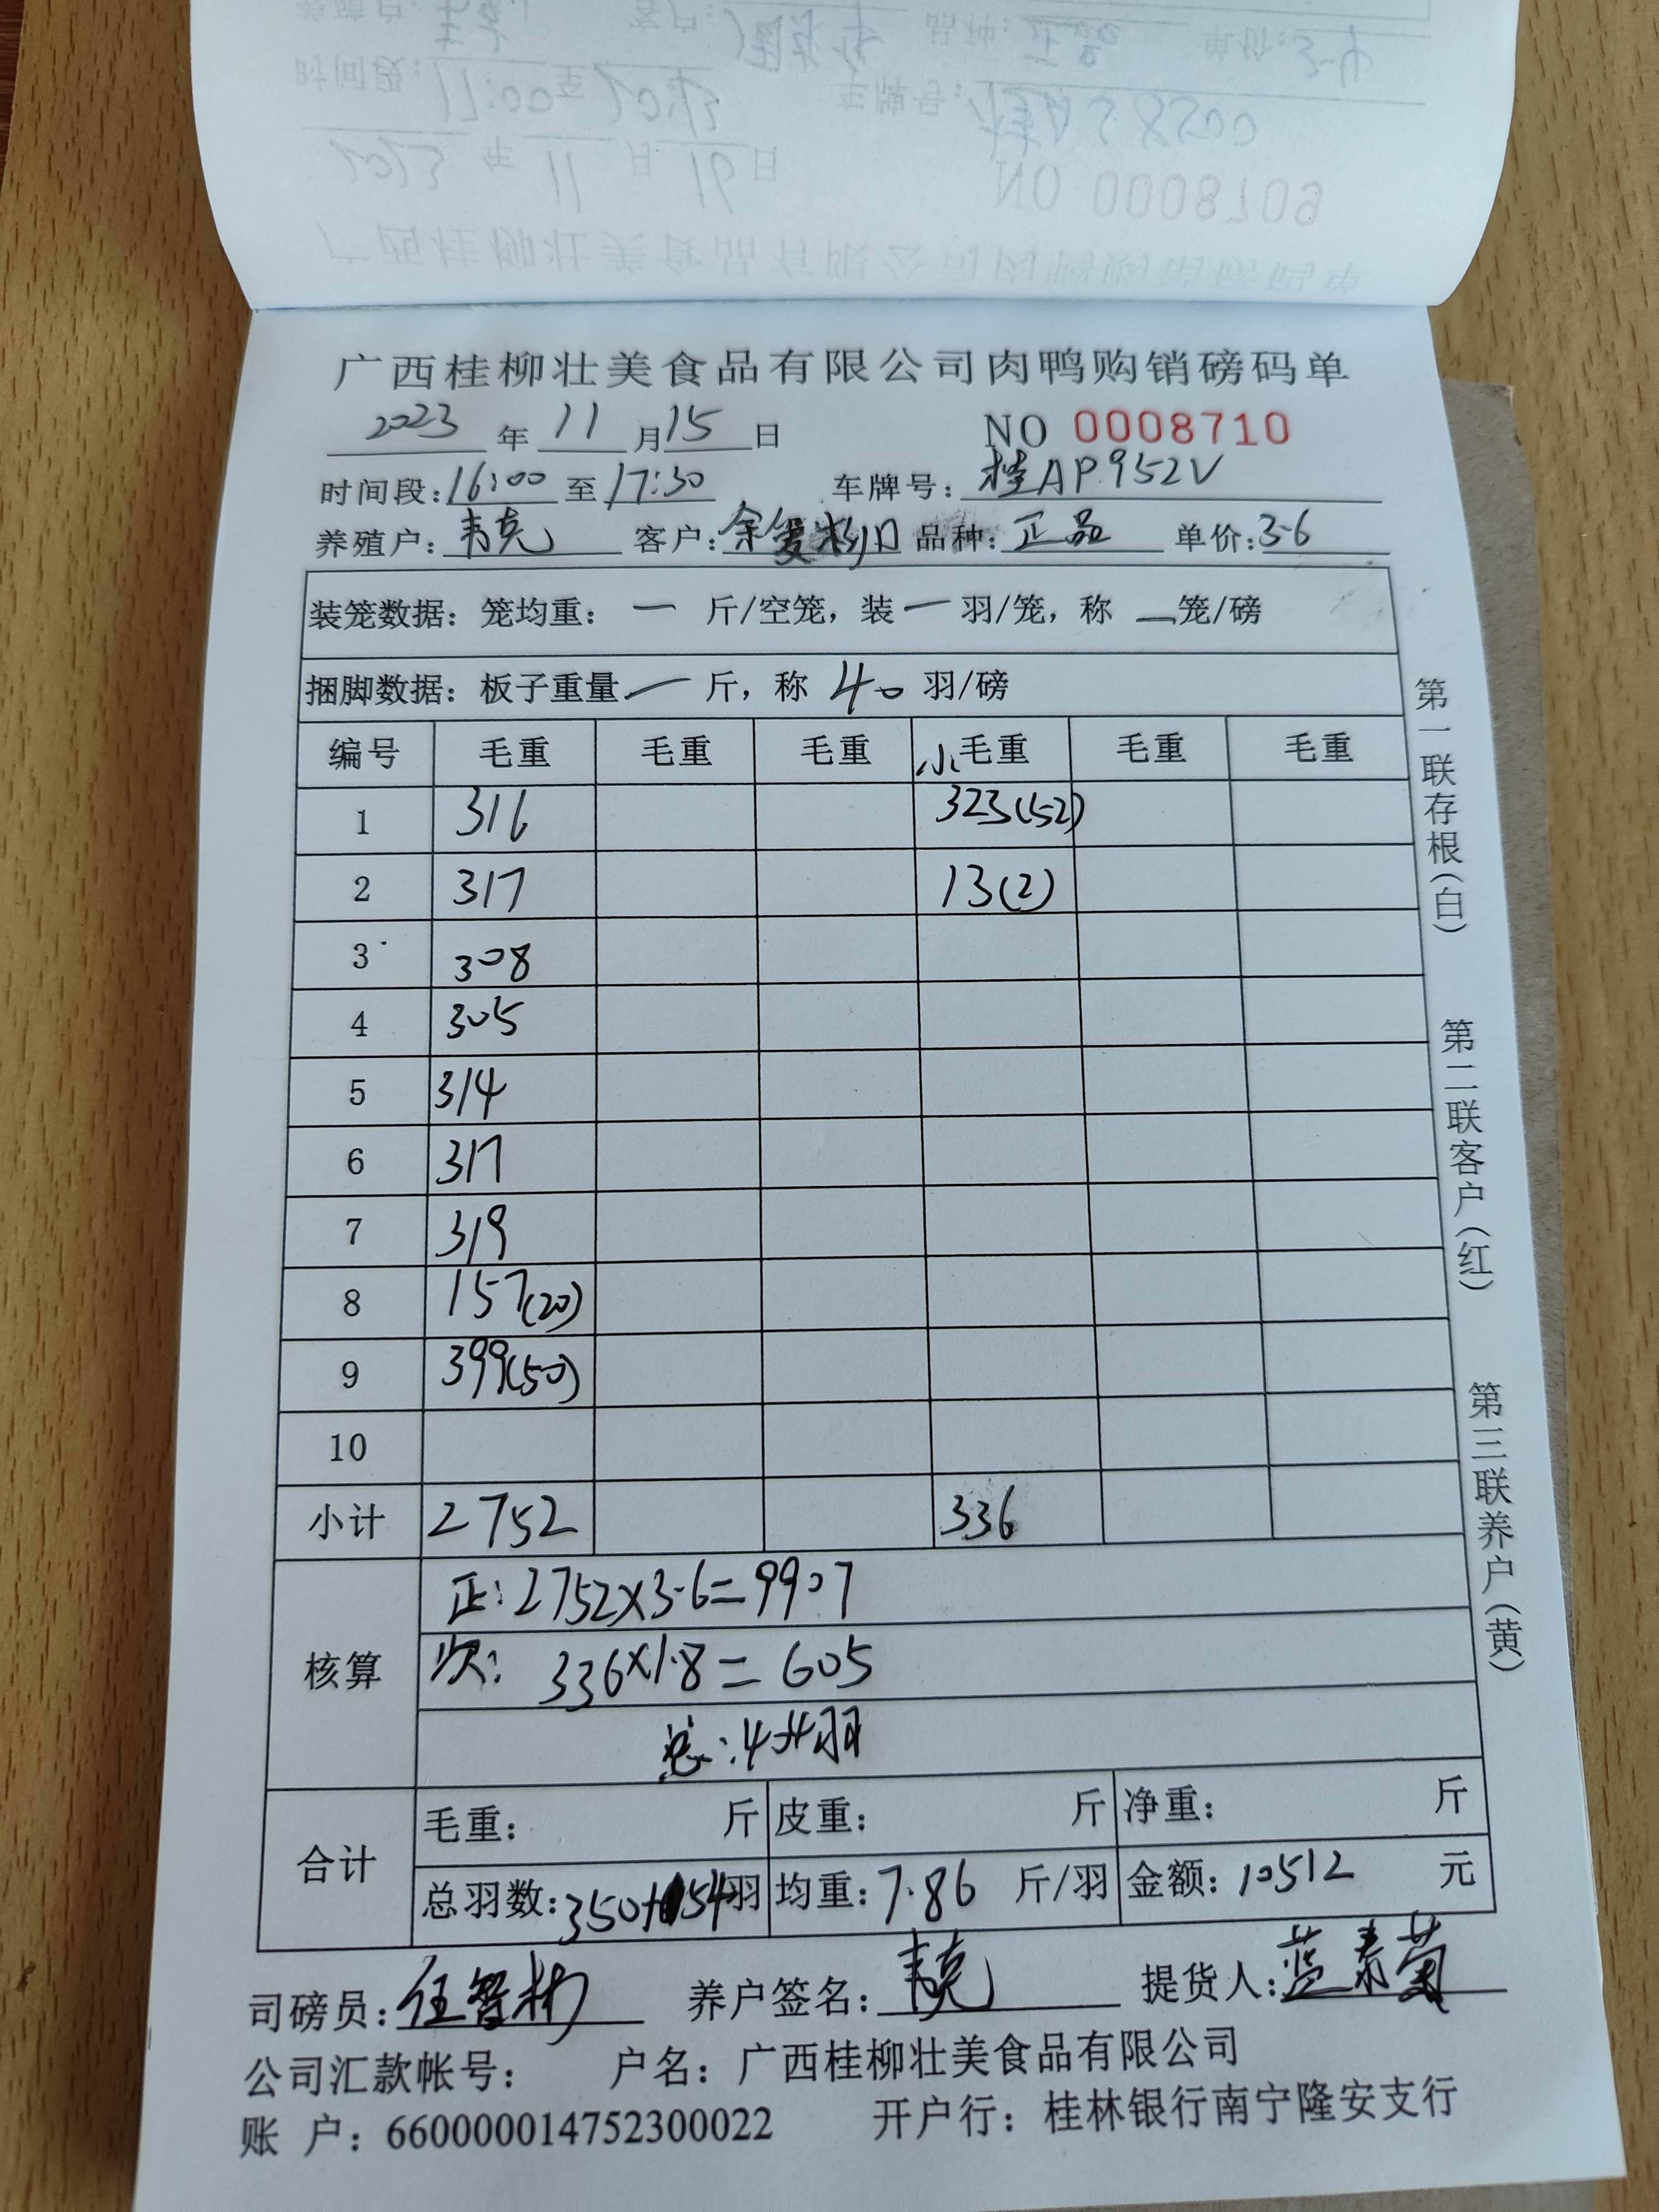 广西桂柳壮美食品有限公司肉鸭购销磅码单
2023 年 11 月 15 日 NO 0008710
时间段: 16:00 至 17:30 车牌号: 桂AP952V
养殖户: 韦克 客户: 品种: 正品 单价: 3.6
装笼数据: 笼均重: 一 斤/空笼, 装 一 羽/笼, 称 一 笼/磅
捆脚数据: 板子重量 一 斤, 称 40 羽/磅
编号 毛重 毛重 毛重 小毛重 毛重 毛重
1 316 323(52)
2 317 13(2)
3 308
4 305
5 314
6 317
7 319
8 157(20)
9 399(50)
10
小计 2752 336
核算
正: 2752×3.6=9907
次: 336×1.8=605
总: 羽
合计
毛重: 斤 皮重: 斤 净重: 斤
总羽数: 350+54羽 均重: 7.86 斤/羽 金额: 10512 元
司磅员: 任智彬 养户签名: 韦克 提货人: 蓝素菊
公司汇款帐号: 户名: 广西桂柳壮美食品有限公司
账 户: 660000014752300022 开户行: 桂林银行南宁隆安支行
第一联存根(白)
第二联客户(红)
第三联养户(黄)